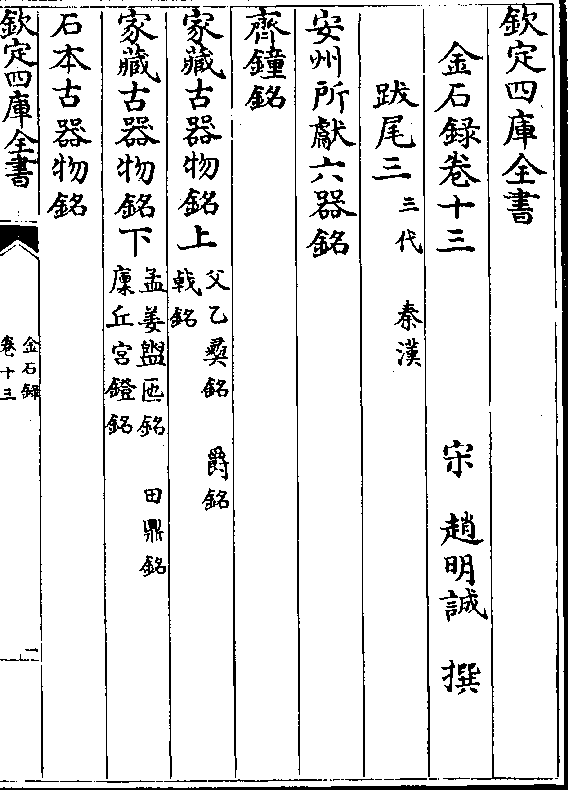 欽定四庫全書
金石録卷十三
宋 趙明誠 撰
跋尾三 三代 秦漢
安州所獻六器銘
齊鐘銘
家藏古器物銘上 父乙彝銘 爵銘 戟銘
家藏古器物銘下 孟姜盥匜銘 田鼎銘 廩丘宮鐙銘
石本古器物銘
欽定四庫全書
金石録
卷十三
一